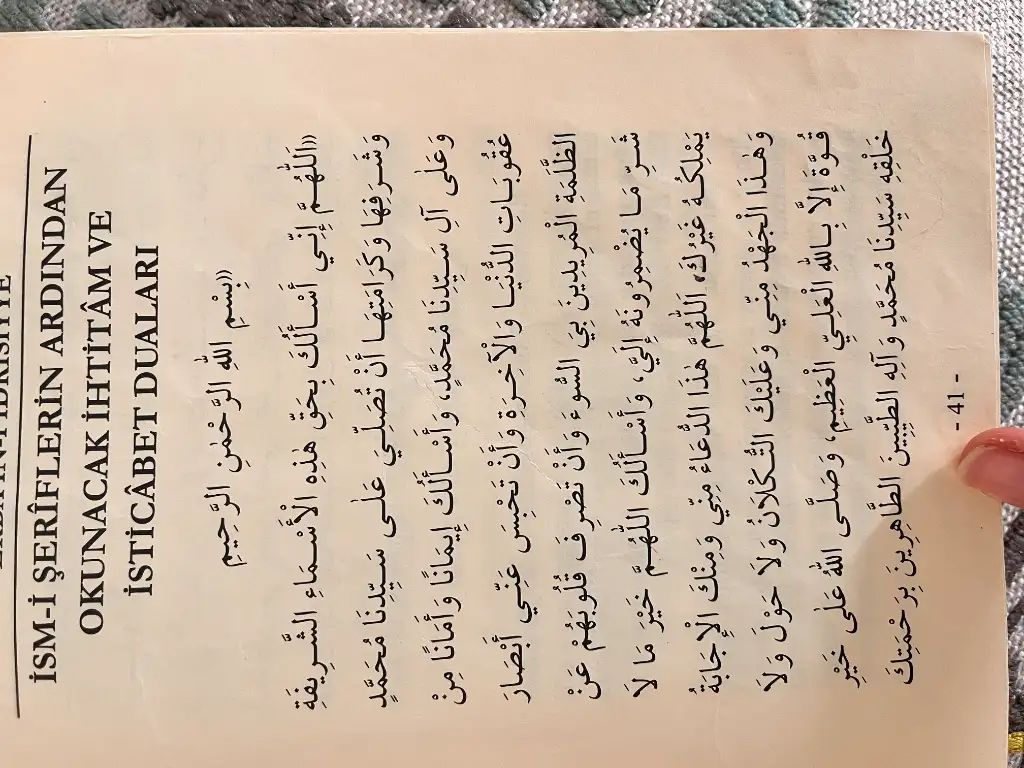 İSM-İ ŞERÎFLERİN ARDINDAN
OKUNACAK İHTİTÂM VE
İSTİCÂBET DUALARI
«بِسْمِ اللهِ الرَّحْمٰنِ الرَّحِيمِ
«اَللّٰهُمَّ إِنِّي أَسْأَلُكَ بِحَقِّ هٰذِهِ الْأَسْمَاءِ الشَّرِيفَةِ
وَشَرَفِهَا وَكَرَامَتِهَا أَنْ تُصَلِّيَ عَلٰى سَيِّدِنَا مُحَمَّدٍ
وَعَلٰى آلِ سَيِّدِنَا مُحَمَّدٍ، وَأَسْأَلُكَ إِيمَانًا وَأَمَانًا مِنْ
عُقُوبَاتِ الدُّنْيَا وَالْآخِرَةِ وَأَنْ تَحْبِسَ عَنِّي أَبْصَارَ
الظَّلَمَةِ الْمُرِيدِينَ بِيَ السُّوءَ وَأَنْ تَصْرِفَ قُلُوبَهُمْ عَنْ
شَرِّ مَا يُضْمِرُونَهُ إِلَيَّ، وَأَسْأَلُكَ اللّٰهُمَّ خَيْرَ مَا لَا
يَمْلِكُهُ غَيْرُكَ، اَللّٰهُمَّ هٰذَا الدُّعَاءُ مِنِّي وَمِنْكَ الْإِجَابَةُ
وَهٰذَا الْجَهْدُ مِنِّي وَعَلَيْكَ التُّكْلَانُ وَلَا حَوْلَ وَلَا
قُوَّةَ إِلَّا بِاللهِ الْعَلِيِّ الْعَظِيمِ، وَصَلَّى اللهُ عَلٰى خَيْرِ
خَلْقِهِ سَيِّدِنَا مُحَمَّدٍ وَآلِهِ الطَّيِّبِينَ الطَّاهِرِينَ بِرَحْمَتِكَ
- 41 -